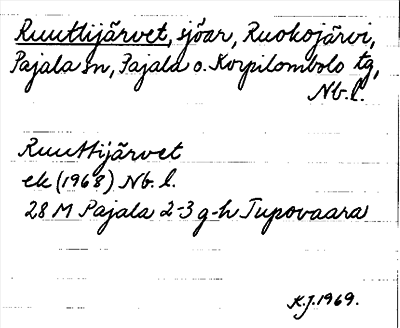 Ruuttijärvet, sjöar, Ruokojärvi,
Pajala sn, Pajala o. Korpilombolo tg,
Nb. l.
Ruuttijärvet
ek (1968) Nb. l.
28 M Pajala 2-3 g-h Tupovaara
K.J. 1969.